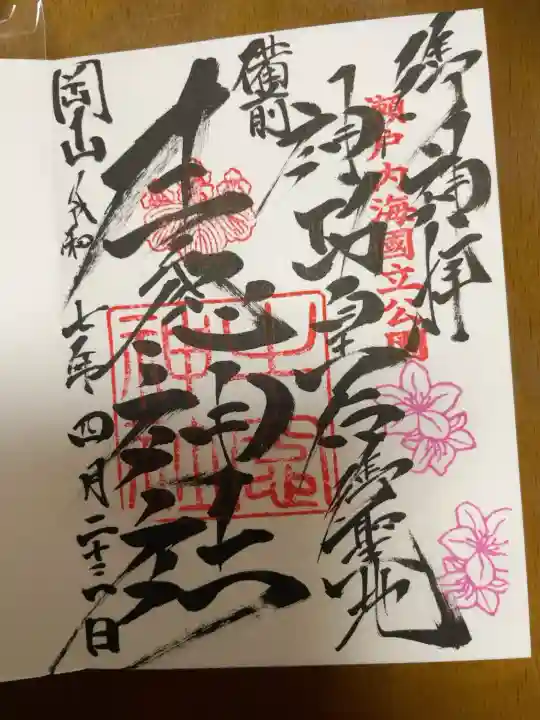 御神拝
瀬戸内海國立公園
神功皇后御聖地
備前
牛窓神社
牛窓神社
岡山 令和七年四月二十三日